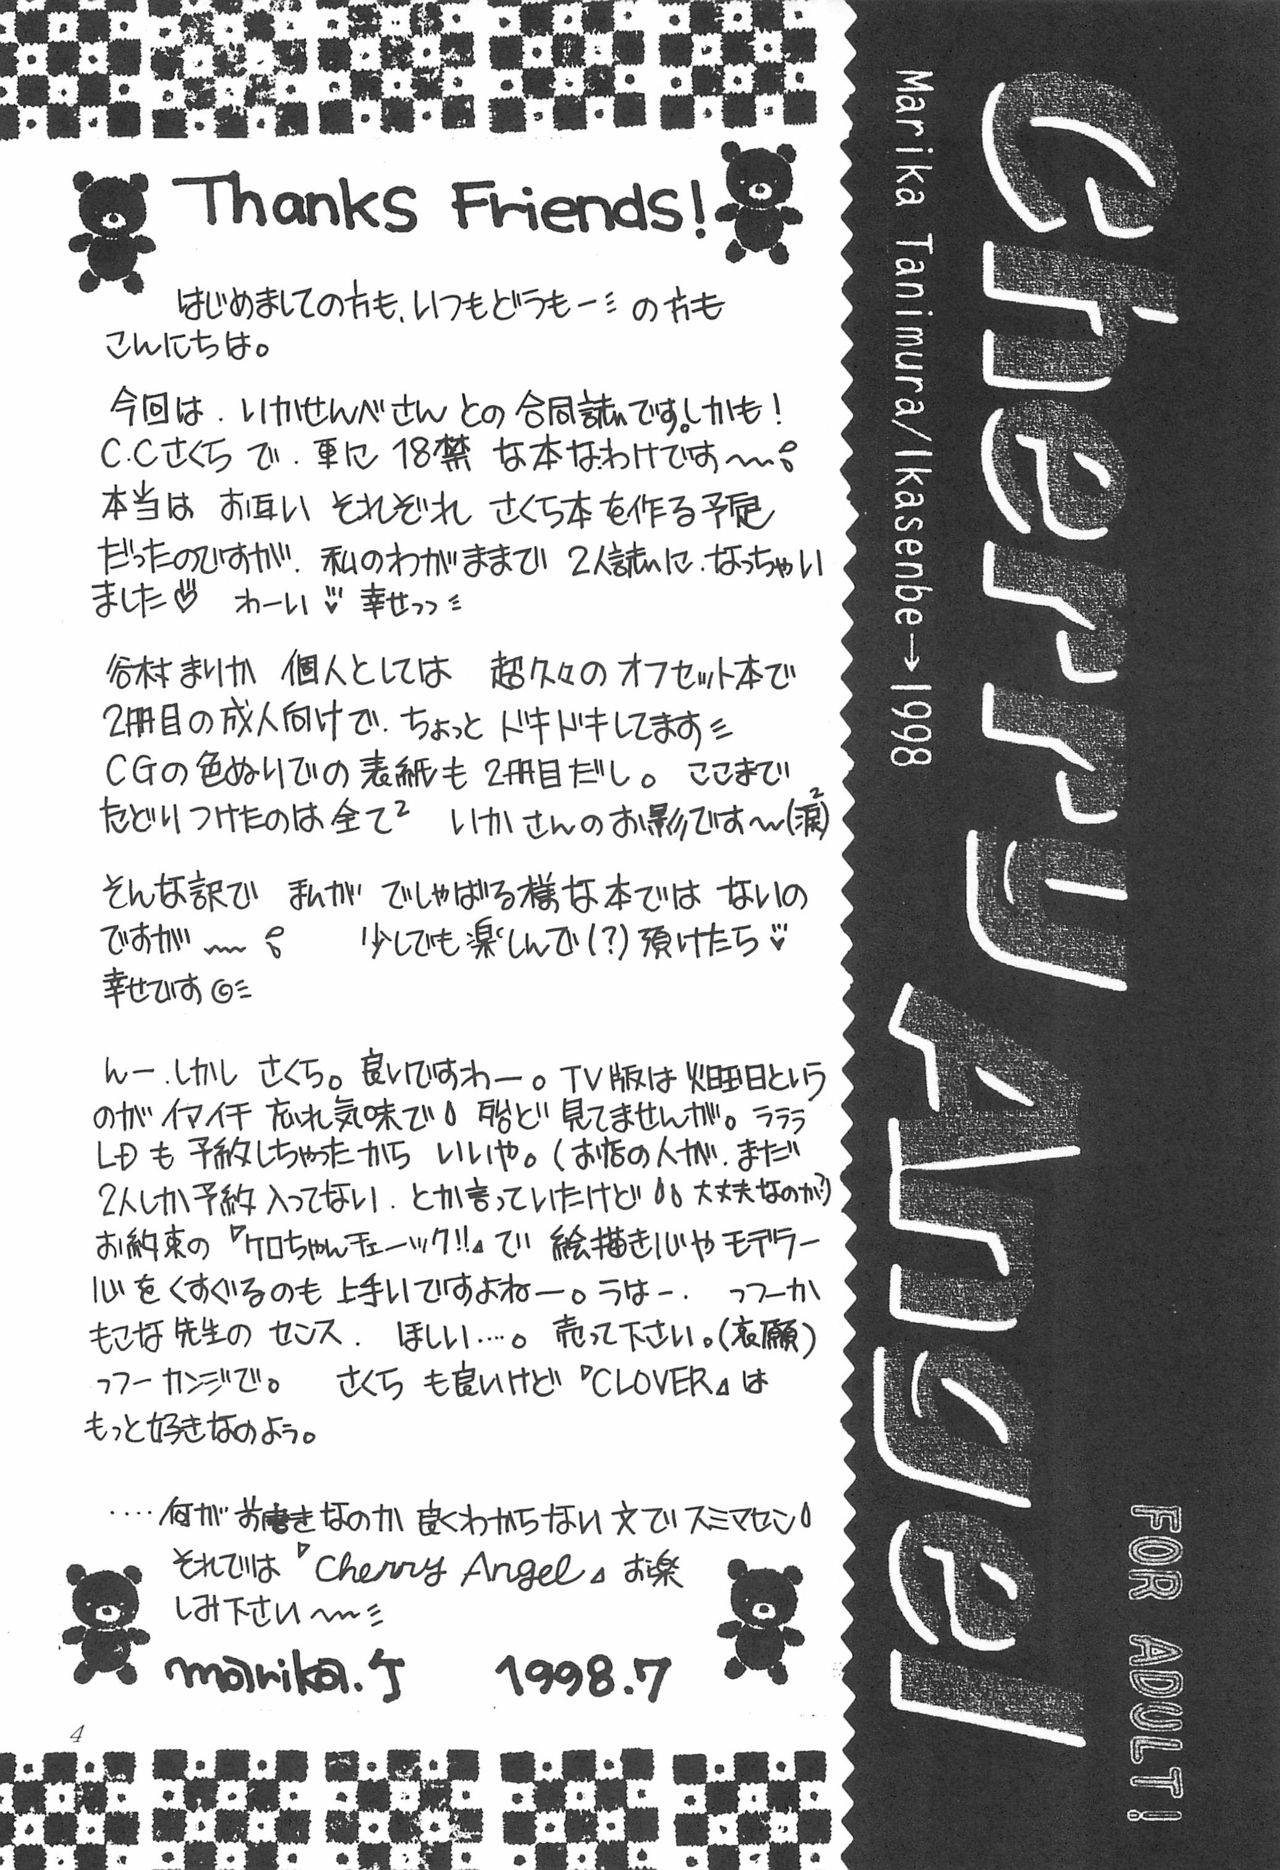 Thanks Friends!
はじめましての方も、いつもどうもーの方も
こんにちは。
今回は、いかせんべさんとの合同誌です。しかも!
C.Cさくらで、更に18禁な本なわけです〜
本当はお互いそれぞれさくら本を作る予定
だったのですが、私のわがままで2人誌に、なっちゃい
ました♡ わーい♡ 幸せっっ
谷村まりか個人としては 超久々のオフセット本で
2冊目の成人向けで、ちょっとドキドキしてます
CGの色ぬりでの表紙も2冊目だし。ここまで
たどりつけたのは全て² いかさんのお影です〜(涙)²
そんな訳で まんがでしゃばる様な本ではないの
ですが〜 少しでも楽しんで(?)頂けたら♡
幸せです◎
んー、しかしさくら。良いですわー。TV版は火曜日という
のがイマイチ忘れ気味で 殆ど見てませんが。ラララ
LDも予約しちゃったからいいや。(お店の人が、まだ
2人しか予約入ってない、とか言っていたけど 大丈夫なのか?)
お約束の『ケロちゃんチェーック!!』で 絵描き心やモデラー
心をくすぐるのも上手いですよねー。うはー、 っつーか
もこな先生のセンス、ほしい…。売って下さい。(哀願)
っつーカンジで。 さくらも良いけど『CLOVER』は
もっと好きなのよう。
‥‥何がお書きなのか良くわからない文でスミマセン
それでは『Cherry Angel』お楽
しみ下さい〜
marika.T 1998.7
4
Cherry Angel
Marika Tanimura/Ikasenbe→1998
FOR ADULT!